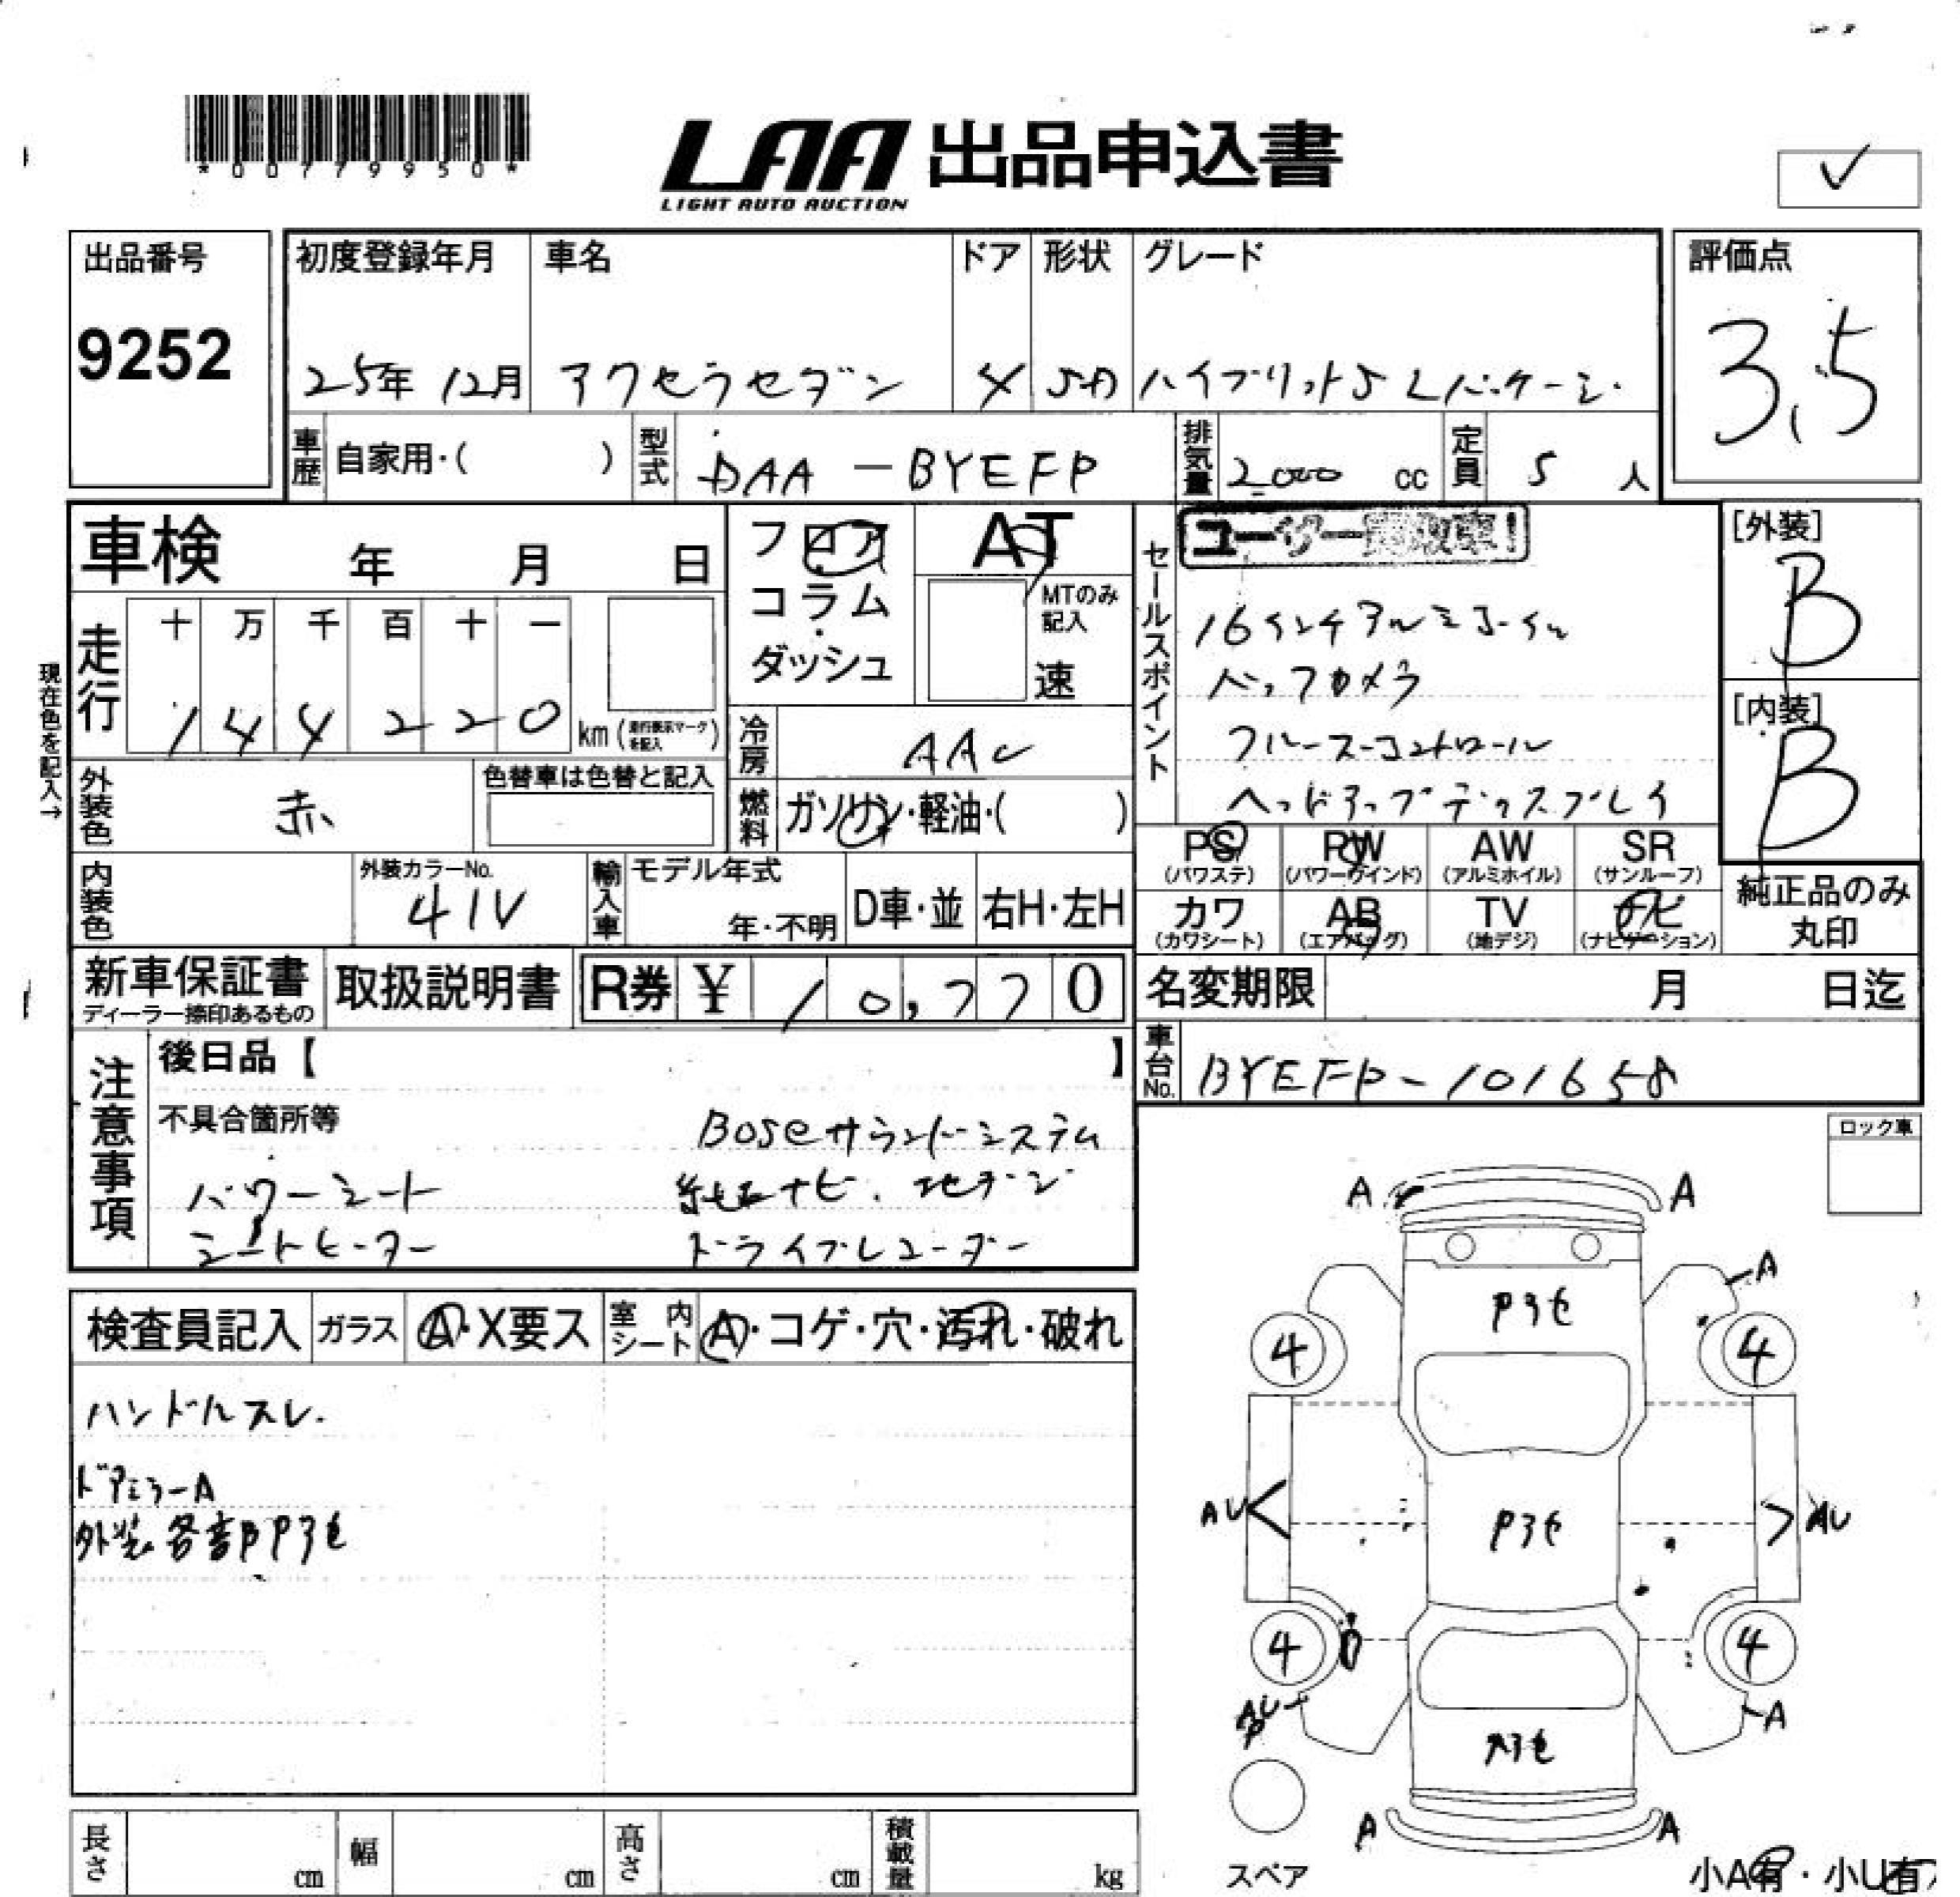 *00779950*
LAA 出品申込書
LIGHT AUTO AUCTION
✓
出品番号
9252
初度登録年月
25年 12月
車名
アクセラセダン
ドア
4
形状
SD
グレード
ハイブリットS Lパッケージ
評価点
3.5
車歴 自家用・( )
型式 DAA-BYEFP
排気量 2000 cc
定員 5 人
車検 年 月 日
フロア
コラム
ダッシュ
AT
MTのみ記入
速
セールスポイント
ユーザー買取車!
16インチアルミホイル
バックカメラ
クルーズコントロール
ヘッドアップディスプレイ
[外装]
B
[内装]
B
現在色を記入→
走行
十 万 千 百 十 一
1 4 4 2 2 0 km (走行表示マークを記入)
冷房 AAC
燃料 ガソリン・軽油・( )
外装色 赤
色替車は色替と記入
内装色
外装カラーNo.
41V
輸入車
モデル年式
年・不明
D車・並
右H・左H
PS
(パワステ)
PW
(パワーウインド)
AW
(アルミホイル)
SR
(サンルーフ)
カワ
(カワシート)
AB
(エアバッグ)
TV
(地デジ)
ナビ
(ナビゲーション)
純正品のみ
丸印
新車保証書
ディーラー捺印あるもの
取扱説明書
R券 ¥ 10,770
名変期限 月 日迄
車台No. BYEFP-101658
注意事項
後日品【 】
不具合箇所等
Boseサウンドシステム
パワーシート 純正ナビ、地デジ
シートヒーター ドライブレコーダー
ロック車
検査員記入 ガラス A・X要ス 室内シート A・コゲ・穴・汚れ・破れ
ハンドルスレ.
ドアミラーA
外装各部Pヨ色
A A
A
Pヨ色
4 4
AU Pヨ色 AU
4 4
AU
P
A
Pヨ色
A A
スペア
小A有・小U有
長さ cm
幅 cm
高さ cm
積載量 kg